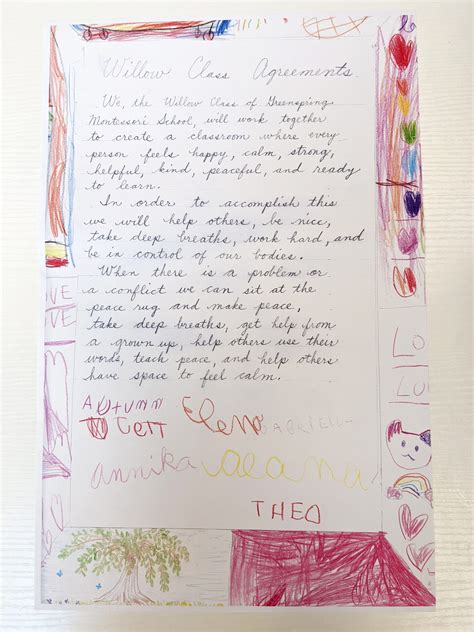 Willow Class Agreements
We, the Willow Class of Greenspring
Montessori School, will work together
to create a classroom where every
person feels happy, calm, strong,
helpful, kind, peaceful, and ready
to learn.
In order to accomplish this
we will help others, be nice,
take deep breaths, work hard, and
be in control of our bodies.
When there is a problem or
a conflict we can sit at the
peace rug and make peace,
take deep breaths, get help from
a grown up, help others use their
words, teach peace, and help others
have space to feel calm.
AUTUMN
annika alana
THEO